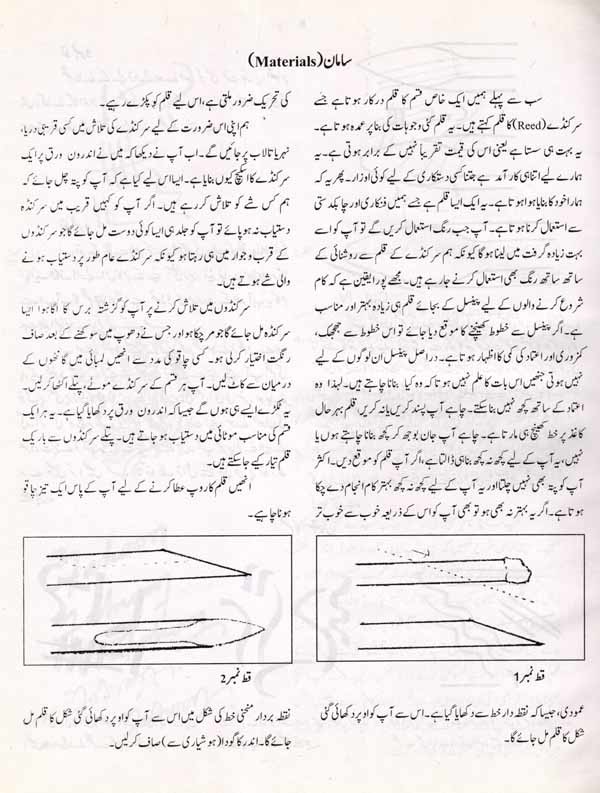 سامان (Materials)
سب سے پہلے ہمیں ایک خاص قسم کا قلم درکار ہوتا ہے جسے
سرکنڈے (Reed) کا قلم کہتے ہیں۔ یہ قلم کئی وجوہات کی بنا پر عمدہ ہوتا ہے۔
یہ بہت ہی سستا ہے یعنی اس کی قیمت تقریباً نہیں کے برابر ہوتی ہے۔ یہ
ہمارے لیے اتنا ہی کار آمد ہے جتنا کسی دستکاری کے لیے کوئی اوزار۔ پھر یہ کہ
ہمارا خود کا بنایا ہوا ہوتا ہے۔ یہ ایک ایسا قلم ہے جسے ہمیں فنکاری اور چابکدستی
سے استعمال کرنا ہوتا ہے۔ آپ جب رنگ استعمال کریں گے تو آپ کو اسے
بہت زیادہ گرفت میں لینا ہوگا کیونکہ ہم سرکنڈے کے قلم سے روشنائی کے
ساتھ ساتھ رنگ بھی استعمال کرنے جا رہے ہیں۔ مجھے پورا یقین ہے کہ کام
شروع کرنے والوں کے لیے پینسل کے بجائے قلم ہی زیادہ بہتر اور مناسب
ہے۔ اگر پینسل سے خطوط کھینچنے کا موقع دیا جائے تو اس خطوط سے جھجھک،
کمزوری اور اعتماد کی کمی کا اظہار ہوتا ہے۔ دراصل پینسل ان لوگوں کے لیے
نہیں ہوتی جنھیں اس بات کا علم نہیں ہوتا کہ وہ کیا بنانا چاہتے ہیں۔ لہٰذا وہ
اعتماد کے ساتھ کچھ نہیں بنا سکتے۔ چاہے آپ پسند کریں یا نہ کریں، قلم بہر حال
کاغذ پر خط کھینچ ہی مارتا ہے۔ چاہے آپ جان بوجھ کر کچھ بنانا چاہتے ہوں یا
نہیں، یہ آپ کے لیے کچھ نہ کچھ بنا ہی ڈالتا ہے، اگر آپ قلم کو موقع دیں۔ اکثر
آپ کو پتہ بھی نہیں چلتا اور یہ آپ کے لیے کچھ نہ کچھ بہتر کام انجام دے چکا
ہوتا ہے۔ اگر یہ بہتر نہ بھی ہو تو بھی آپ کو اس کے ذریعہ خوب سے خوب تر
کی تحریک ضرور ملتی ہے، اس لیے قلم کو پکڑے رہیے۔
ہم اپنی اس ضرورت کے لیے سرکنڈے کی تلاش میں کسی قریبی دریا،
نہر یا تالاب پر جائیں گے۔ اب آپ نے دیکھا کہ میں نے اندرون ورق پر ایک
سرکنڈے کا اسکیچ کیوں بنایا ہے۔ ایسا اس لیے کیا ہے کہ آپ کو پتہ چل جائے کہ
ہم کس شے کو تلاش کر رہے ہیں۔ اگر آپ کو کہیں قریب میں سرکنڈہ
دستیاب نہ ہو پائے تو آپ کو جلد ہی ایسا کوئی دوست مل جائے گا جو سرکنڈوں
کے قرب و جوار میں ہی رہتا ہو کیونکہ سرکنڈے عام طور پر دستیاب ہونے
والی شے ہوتے ہیں۔
سرکنڈوں میں تلاش کرنے پر آپ کو گزشتہ برس کا اگا ہوا ایسا
سرکنڈہ مل جائے گا جو مرچکا ہو اور جس نے دھوپ میں سوکھنے کے بعد صاف
رنگت اختیار کرلی ہو۔ کسی چاقو کی مدد سے انھیں لمبائی میں گانٹھوں کے
درمیان سے کاٹ لیں۔ آپ ہر قسم کے سرکنڈے موٹے، پتلے اکٹھا کرلیں۔
یہ ٹکڑے ایسے ہی ہوں گے جیسا کہ اندرون ورق پر دکھایا گیا ہے۔ یہ ہر ایک
قسم کی مناسب موٹائی میں دستیاب ہو جاتے ہیں۔ پتلے سرکنڈوں سے باریک
قلم تیار کیے جا سکتے ہیں۔
انھیں قلم کا روپ عطا کرنے کے لیے آپ کے پاس ایک تیز چاقو
ہونا چاہیے۔
قط نمبر 1
عمودی، جیسا کہ نقطہ دار خط سے دکھایا گیا ہے۔ اس سے آپ کو اوپر دکھائی گئی
شکل کا قلم مل جائے گا۔
قط نمبر 2
نقطہ بردار منحنی خط کی شکل میں اس سے آپ کو اوپر دکھائی گئی شکل کا قلم مل
جائے گا۔ اندر کا گودا (ہوشیاری سے) صاف کرلیں۔